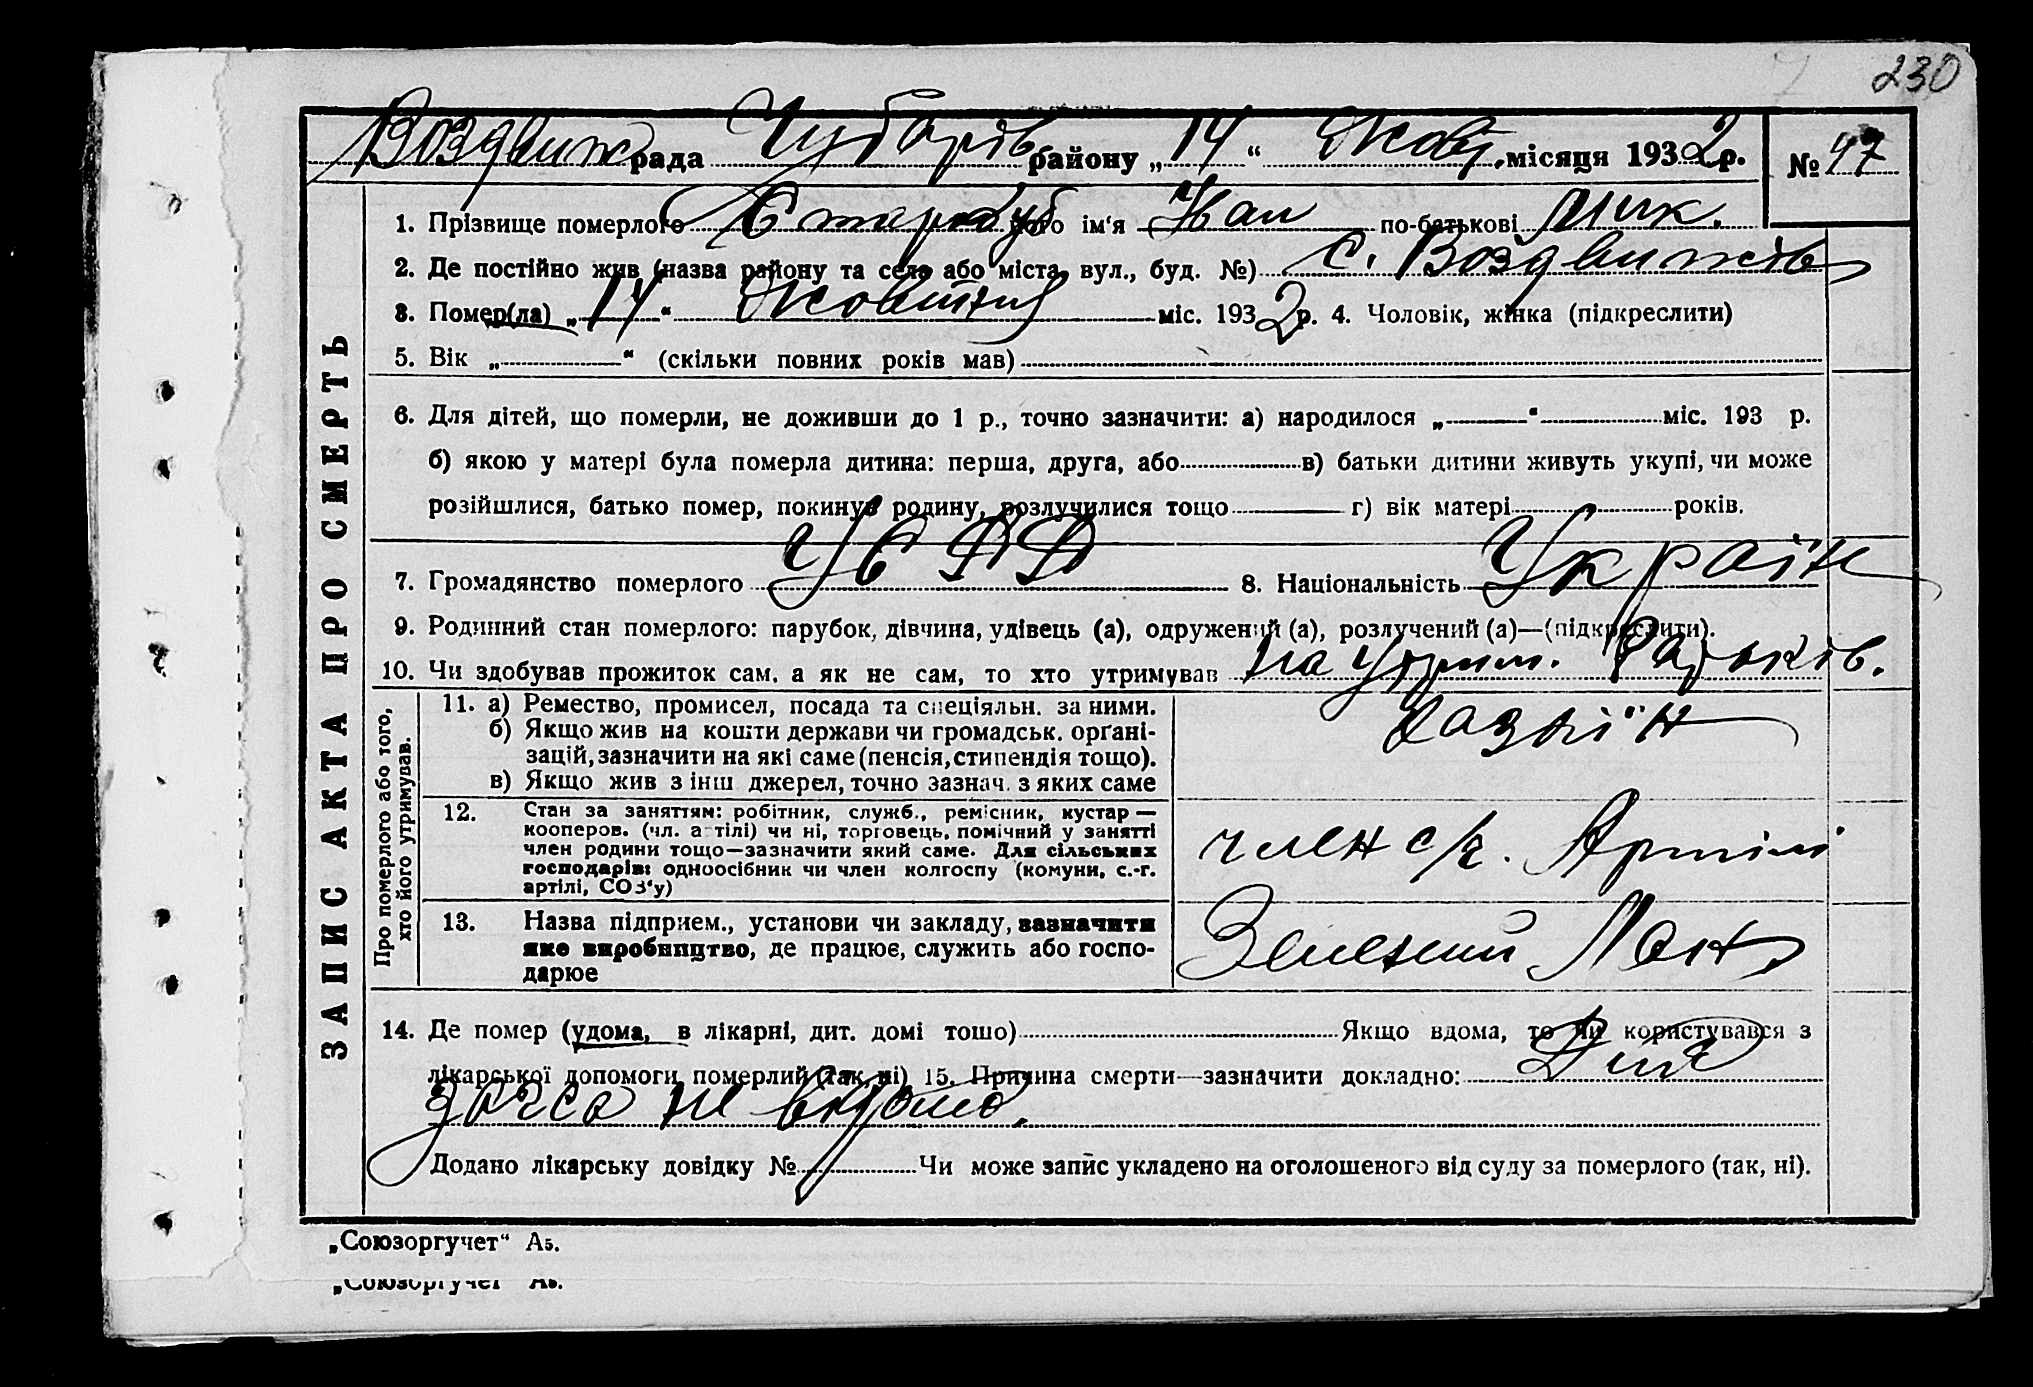 230
Воздвиж рада Чубарів району „14“ Жовт. місяця 1932 р. № 47
ЗАПИС АКТА ПРО СМЕРТЬ
1. Прізвище померлого його ім'я по-батькові Мик.
2. Де постійно жив (назва району та село або міста, вул., буд. №) с. Воздвижів
3. Помер(ла) „14“ Жовтня міс. 1932 р. 4. Чоловік, жінка (підкреслити)
5. Вік „ “ (скільки повних років мав)
6. Для дітей, що померли, не доживши до 1 р., точно зазначити: а) народилося „ “ міс. 193 р.
б) якою у матері була померла дитина: перша, друга, або в) батьки дитини живуть укупі, чи може
розійшлися, батько помер, покинув родину, розлучилися тощо г) вік матері років.
7. Громадянство померлого УСРР 8. Національність Україн
9. Родинний стан померлого: парубок, дівчина, удівець (а), одружений (а), розлучений (а)—(підкреслити).
10. Чи здобував прожиток сам, а як не сам, то хто утримував на утрим. Батьків.
Про померлого або того,
хто його утримував.
11. а) Ремество, промисел, посада та спеціяльн. за ними.
б) Якщо жив на кошти держави чи громадськ. органі-
зацій, зазначити на які саме (пенсія, стипендія тощо).
в) Якщо жив з інш джерел, точно зазнач. з яких саме
12. Стан за заняттям: робітник, служб., ремісник, кустар —
кооперов. (чл. артілі) чи ні, торговець, помічний у занятті
член родини тощо—зазначити який саме. Для сільських
господарів: одноосібник чи член колгоспу (комуни, с.-г.
артілі, СОЗ'у)
член с/г. Артілі
13. Назва підприєм., установи чи закладу, зазначити
яке виробництво, де працює, служить або госпо-
дарює
Зелений Лан
14. Де помер (удома, в лікарні, дит. домі тощо) Якщо вдома, то чи користувався з
лікарської допомоги померлий (так, ні) 15. Причина смерти—зазначити докладно:
не відомо.
Додано лікарську довідку № Чи може запис укладено на оголошеного від суду за померлого (так, ні).
„Союзоргучет“ А5.
„Союзоргучет А5.